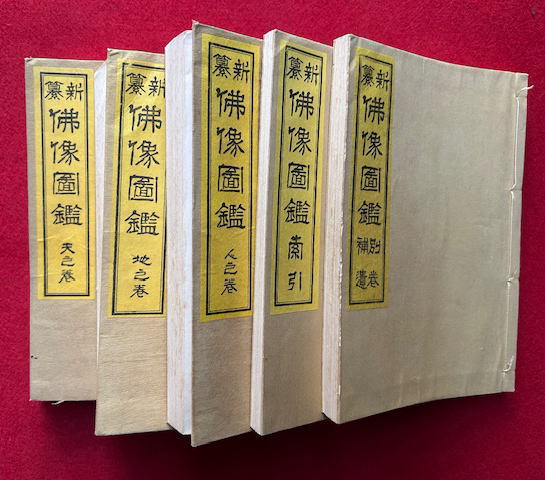 新纂
佛像圖鑑
天之卷
新纂
佛像圖鑑
地之卷
新纂
佛像圖鑑
人之卷
新纂
佛像圖鑑
索引
新纂
佛像圖鑑
別卷
補遺